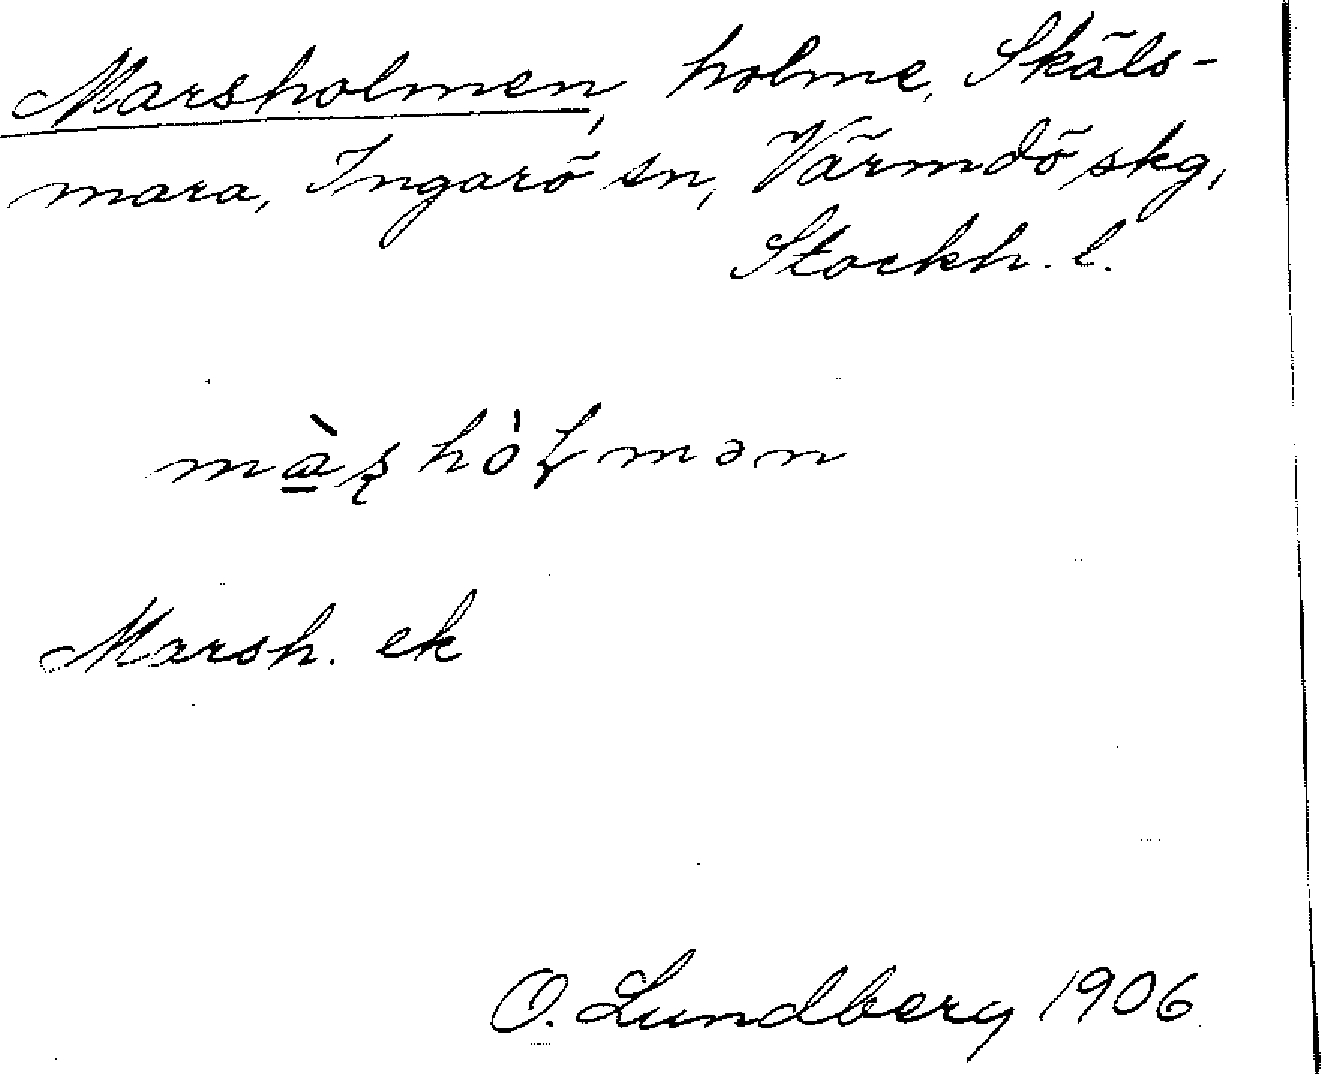 Marsholmen, holme, Skäls-
mara, Ingarö sn, Värmdö skg,
Stockh. l.
mà̲ʂhòɭmən
Marsh. ek
O. Lundberg 1906